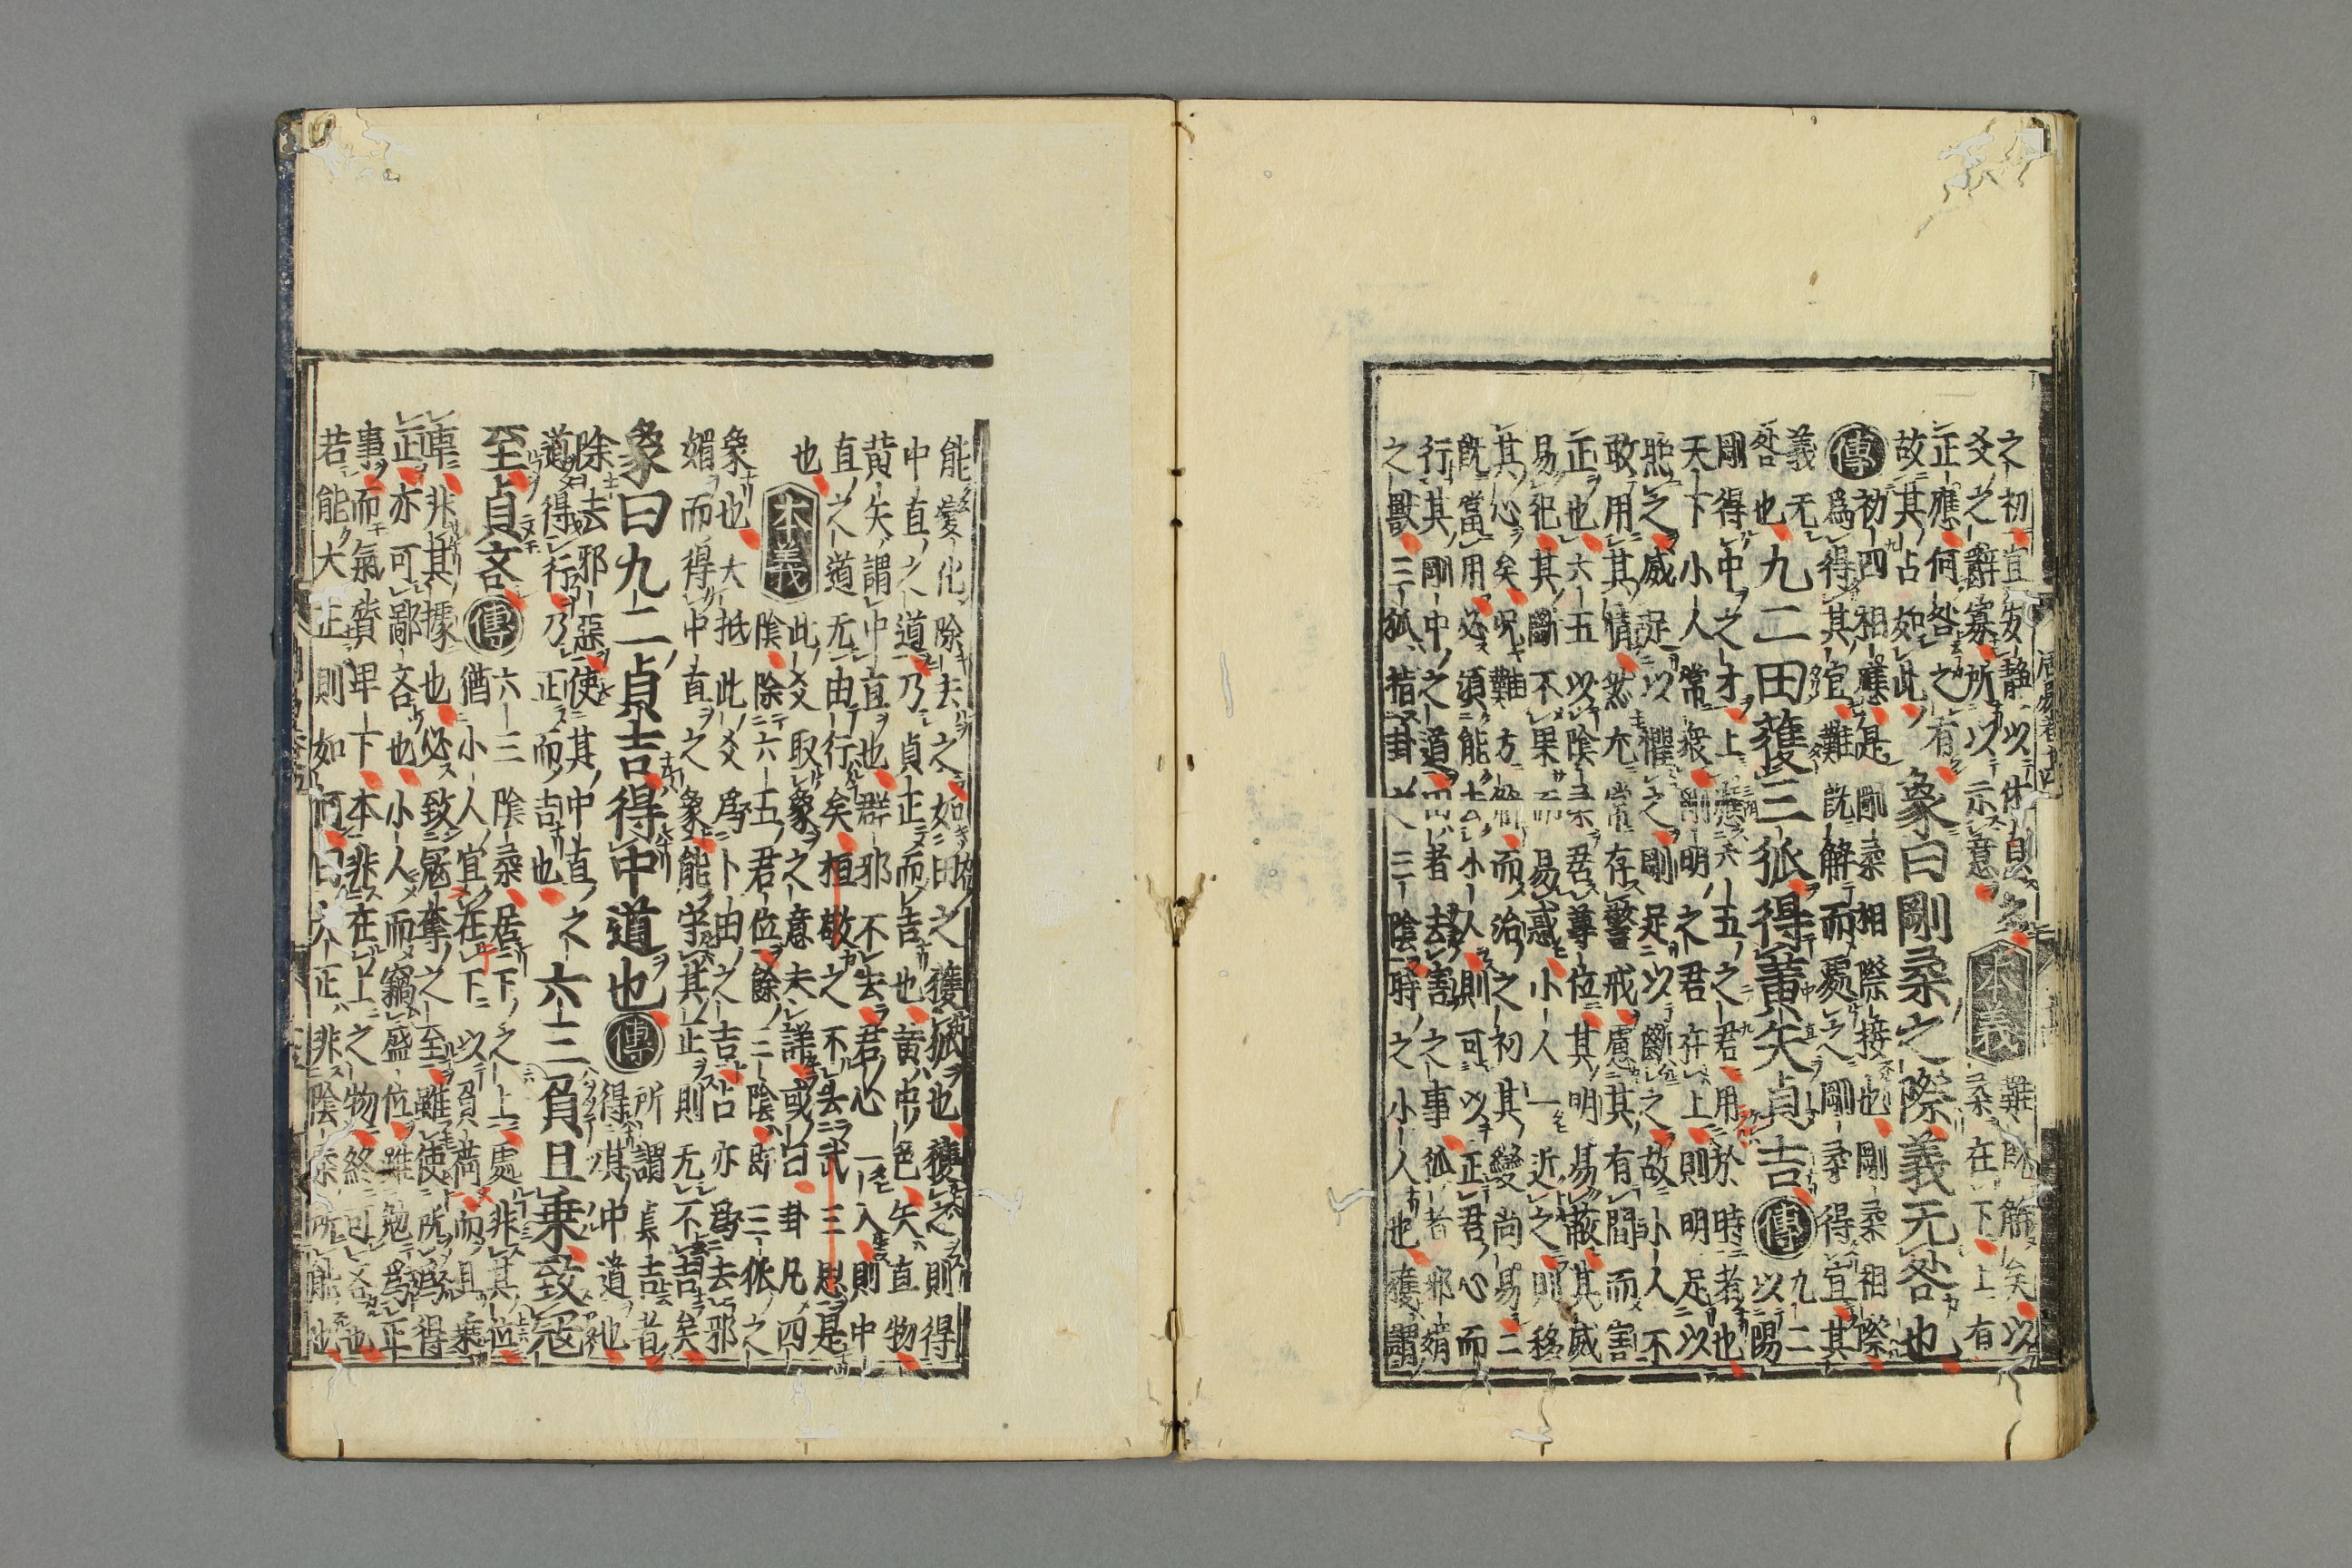 之初宜安靜以休息之 本義 難既解矣以
爻之辭寡所以示意 柔在下上有
正應何咎之有
故其占如此 象曰剛柔之際義无咎也
傳 初四相應是剛柔相際接也剛柔相際
為得其宜難既解而處之剛柔得宜其
義无
咎也 九二田獲三狐得黃矢貞吉 傳 九二以陽
剛得中之才上應六五之君用於時者也
天下小人常衆剛明之君在上則明足以
照之威足以懼之剛足以斷之故小人不
敢用其情然尤常存警戒慮其有間而害
正也六五以陰柔居尊位其明易蔽其威
易犯其斷不果而易惑小人一近之則移
其心矣况難方解而治之初其變尚易二
既當用必須能去小人則可以正君心而
行其剛中之道田者去害之事狐者邪媚
之獸三狐指卦之三陰時之小人也獲謂
能變化除去之如田之獲狐也獲之則得
中直之道乃貞正而吉也黃中色矢直物
黃矢謂中直也群邪不去君心一入則中
直之道无由行矣桓敬之不去武三思是
也 本義 此爻取象之意未詳或曰卦凡四
陰除六五君位餘三陰即三狐之
象也大抵此爻為卜田之吉占亦為去邪
媚而得中直之象能守其正則无不吉矣
象曰九二貞吉得中道也 傳 所謂貞吉者
得其中道也
除去邪惡使其中直之
道得行乃正而吉也 六三負且乘致寇
至貞吝 傳 六三陰柔居下之上處非其位
猶小人宜在下以負荷而且乘
車非其據也必致寇奪之至雖使所為得
正亦可鄙吝也小人而竊盛位雖勉為正
事而氣質卑下本非在上之物終可吝也
若能大正則如何曰大正非陰柔所能也